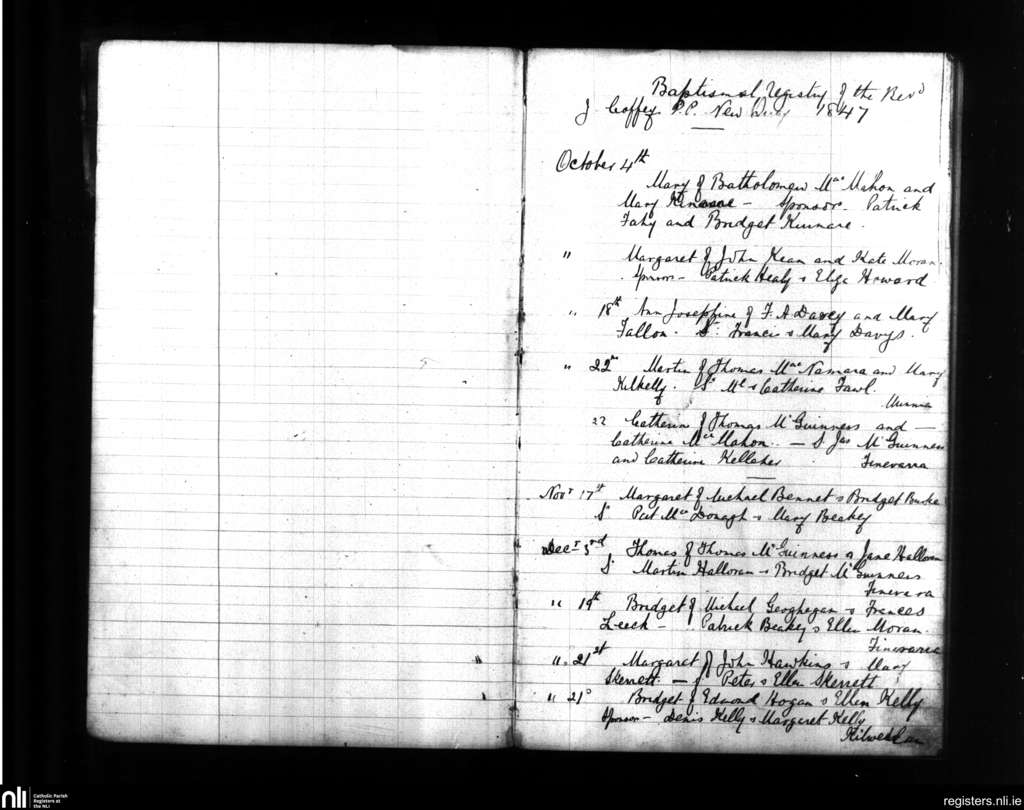 Baptismal Registry of the Revd
J Coffey P.P. New Quay 1847
October 4th
Mary of Batholomew Mac Mahon and
Mary Kinnare - Sponsor - Patrick
Fahy and Bridget Kinnare.
" Margaret of John Kean and Kate Moran.
Sponsor - Patrick Healy & Eliza Howard
" 18th Ann Josephine of F. A Davey and Mary
Fallon. Sr. Francis & Mary Davys.
" 22nd Martin of Thomas Mac Namara and Mary
Kilkelly. Sr Ml & Catherine Fawl.
22 Catherine of Thomas McGuinness and —
Catherine Mac Mahon. — S Jas McGuinness
and Catherine Kellaher Finevarra
Novr 17th Margaret of Michael Bennet & Bridget Burke
Sr Pat Mac Donagh & Mary Beakey
Decr 3rd Thomas of Thomas McGuinness & Jane Halloran
Sr Martin Halloran & Bridget McGuinness
Finevara
" 19th Bridget of Michael Geoghegan & Frances
Leech - Patrick Beakey & Ellen Moran.
Finevarra
" 21st Margaret of John Hawkins & Mary
Skerrett — S Peter & Ellen Skerrett
" 21st Bridget of Edmond Hogan & Ellen Kelly
Sponsor - Denis Kelly & Margaret Kelly
nli
Catholic Parish
Registers at
the NLI
registers.nli.ie